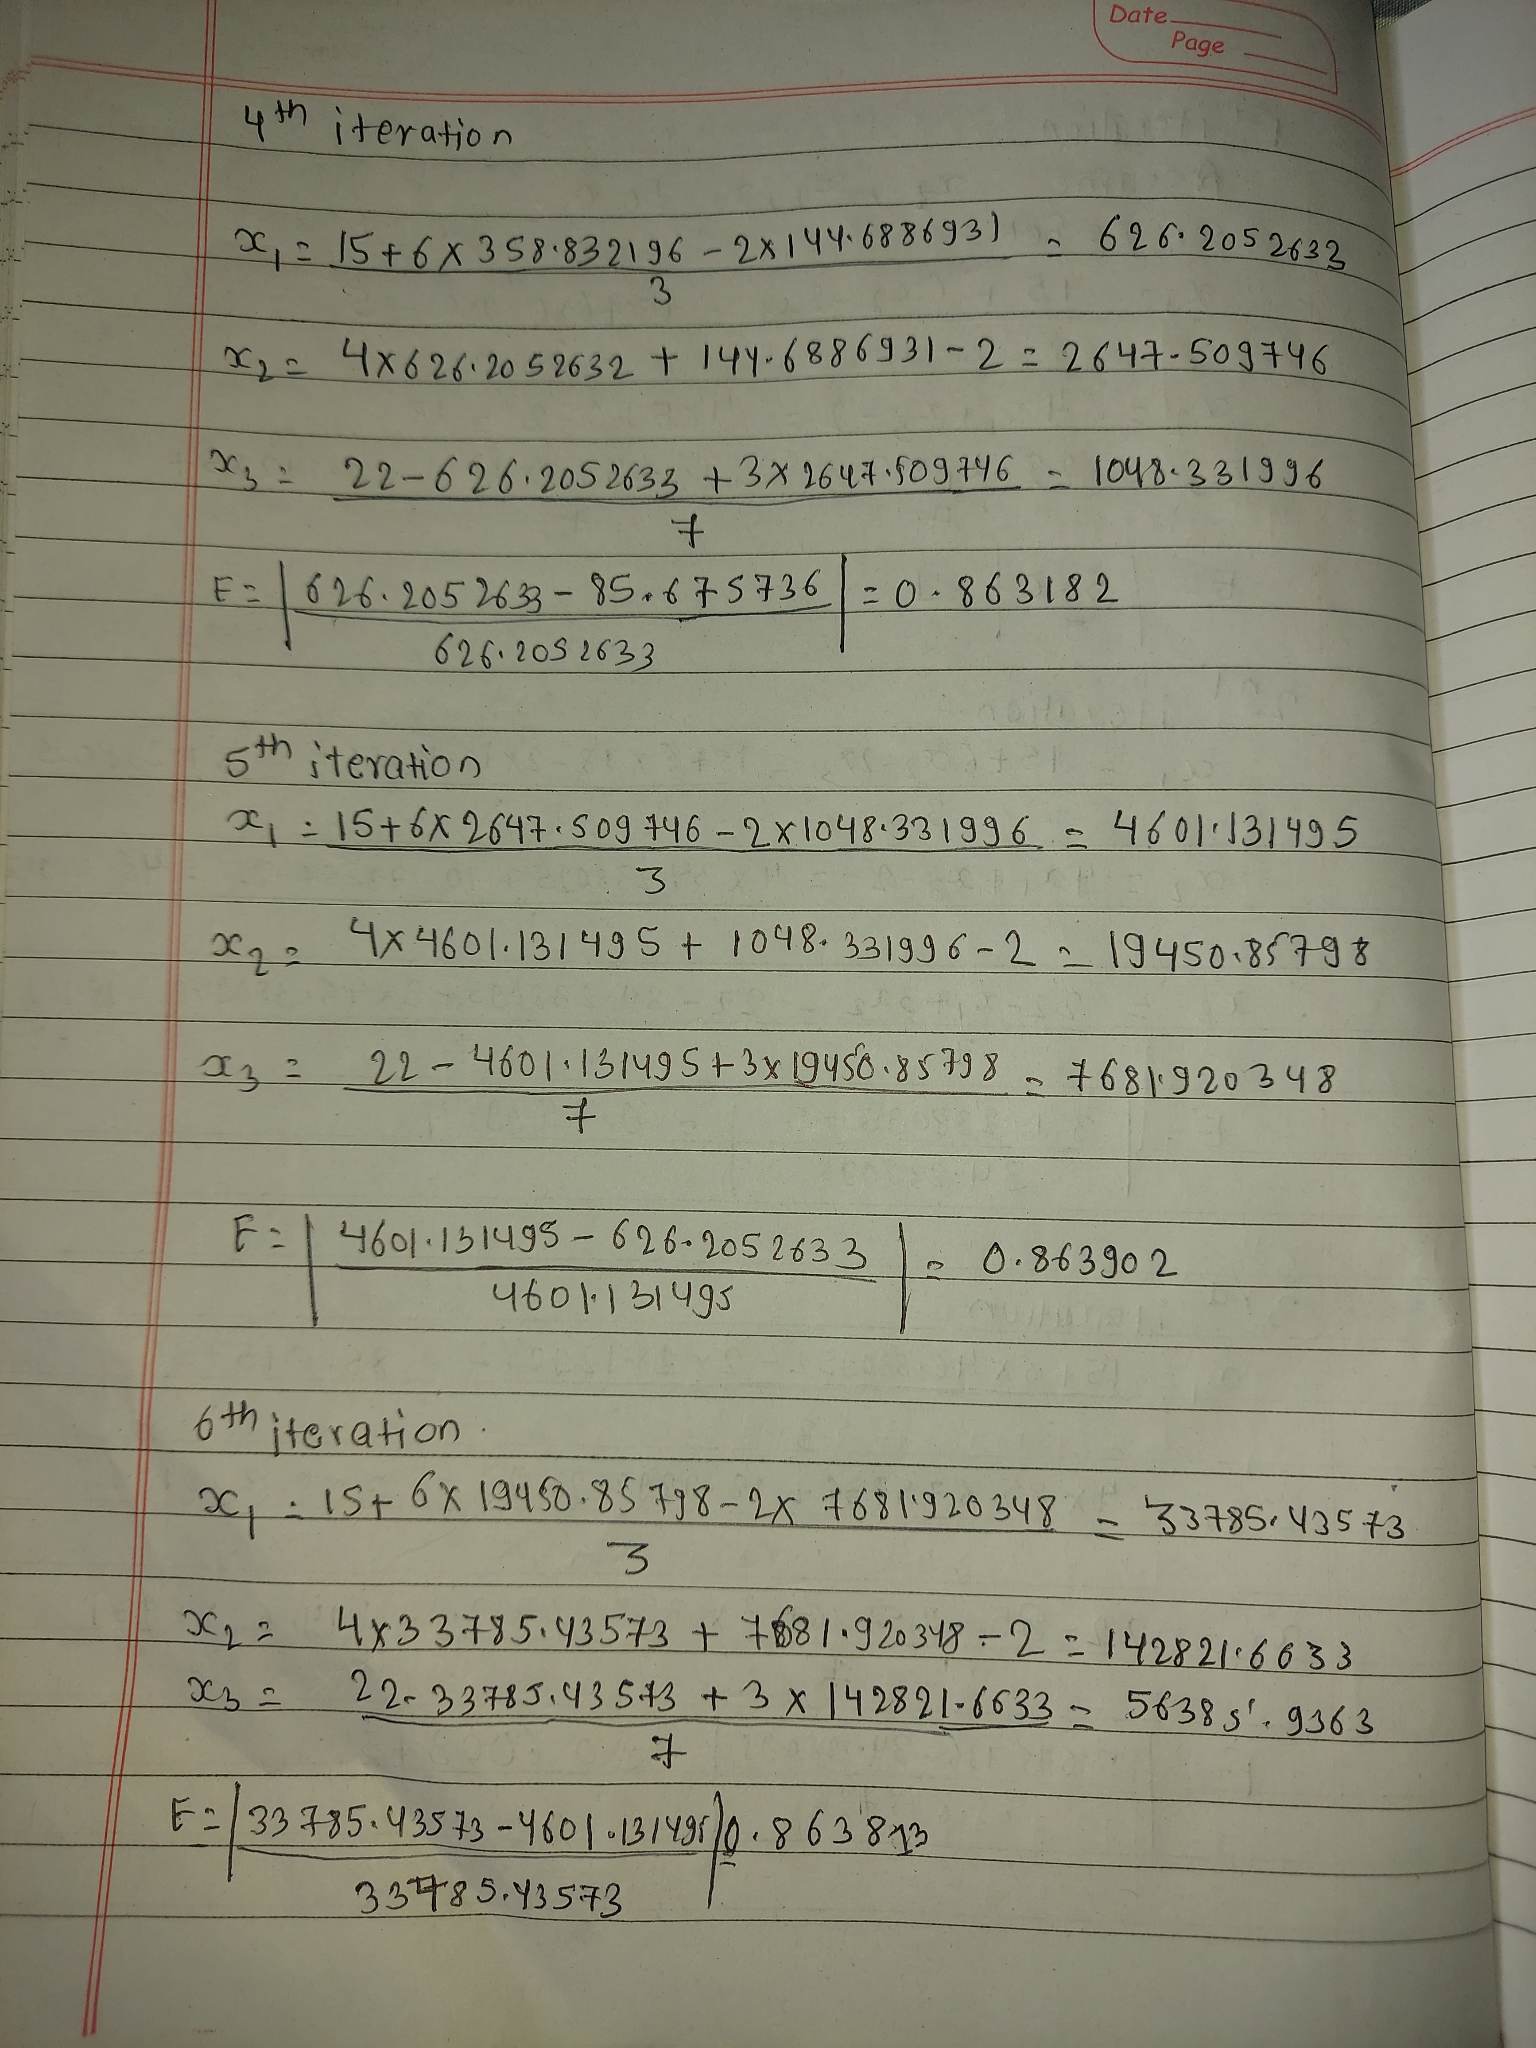 Date
Page
4th iteration
x₁ = 15+6×358.832196-2×144.6886931 = 626.2052633
3
x₂ = 4×626.2052632 + 144.6886931-2 = 2647.509746
x₃ = 22-626.2052633 + 3×2647.509746 = 1048.331996
7
E = |626.2052633-85.675736| = 0.863182
626.2052633
5th iteration
x₁ = 15+6×2647.509746-2×1048.331996 = 4601.131495
3
x₂ = 4×4601.131495 + 1048.331996-2 = 19450.85798
x₃ = 22-4601.131495+3×19450.85798 = 7681.920348
7
E = |4601.131495-626.2052633| = 0.863902
4601.131495
6th iteration.
x₁ = 15+6×19450.85798-2×7681.920348 = 33785.43573
3
x₂ = 4×33785.43573 + 7681.920348-2 = 142821.6633
x₃ = 22-33785.43573 + 3×142821.6633 = 56385.9363
7
E = |33785.43573-4601.131495| = 0.863813
33785.43573